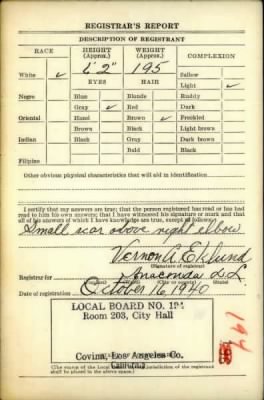 REGISTRAR'S REPORT
DESCRIPTION OF REGISTRANT
RACE HEIGHT (Approx.) WEIGHT (Approx.) COMPLEXION
6' 2" 195
White ✓ EYES HAIR Sallow
Light ✓
Negro Blue Blonde Ruddy
Gray ✓ Red Dark
Oriental Hazel Brown ✓ Freckled
Brown Black Light brown
Indian Black Gray Dark brown
Bald Black
Filipino
Other obvious physical characteristics that will aid in identification
I certify that my answers are true; that the person registered has read or has had read to him his own answers; that I have witnessed his signature or mark and that all of his answers of which I have knowledge are true, except as follows:
Small scar above right elbow
(Signature of registrar)
Registrar for
(City or county) (State)
Date of registration October 16, 1940
LOCAL BOARD NO. 194
Room 203, City Hall
Covina, Los Angeles Co.
California
(The stamp of the Local Board having jurisdiction of the registrant shall be placed in the above space.)
194